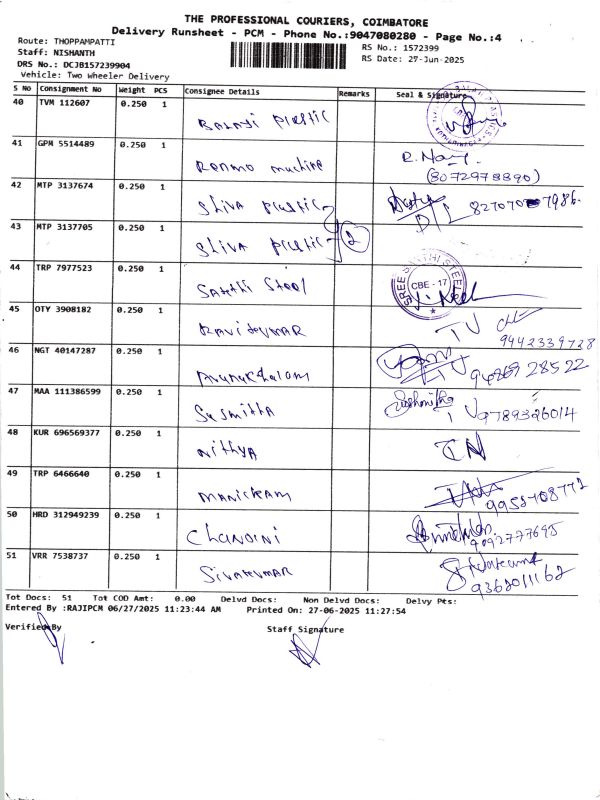 THE PROFESSIONAL COURIERS, COIMBATORE
Delivery Runsheet - PCM - Phone No.:9047080280 - Page No.:4
Route: THOPPAMPATTI
RS No.: 1572399
Staff: NISHANTH
RS Date: 27-Jun-2025
DRS No.: DCJB157239904
Vehicle: Two Wheeler Delivery
S No Consignment No Weight PCS Consignee Details Remarks Seal & Signature
40 TVM 112607 0.250 1 BALAJI PLASTIC
41 GPM 5514489 0.250 1 machine
(8072978890)
42 MTP 3137674 0.250 1 SHIVA PLASTIC
43 MTP 3137705 0.250 1 SHIVA PLASTIC 2
44 TRP 7977523 0.250 1 SAKTHI STEEL SREE SAKTHI STEEL CBE - 17
45 OTY 3908182 0.250 1 RAVIKUMAR
9442339728
46 NGT 40147287 0.250 1 Arunachalam
47 MAA 111386599 0.250 1 SUSMITTA
9789326014
48 KUR 696569377 0.250 1 NITHYA
49 TRP 6466640 0.250 1 MANICKAM
50 HRD 312949239 0.250 1 CHANDINI
9092777695
51 VRR 7538737 0.250 1 SIVAKUMAR
9362011162
Tot Docs: 51 Tot COD Amt: 0.00 Delvd Docs: Non Delvd Docs: Delvy Pts:
Entered By :RAJIPCM 06/27/2025 11:23:44 AM Printed On: 27-06-2025 11:27:54
Verified By Staff Signature